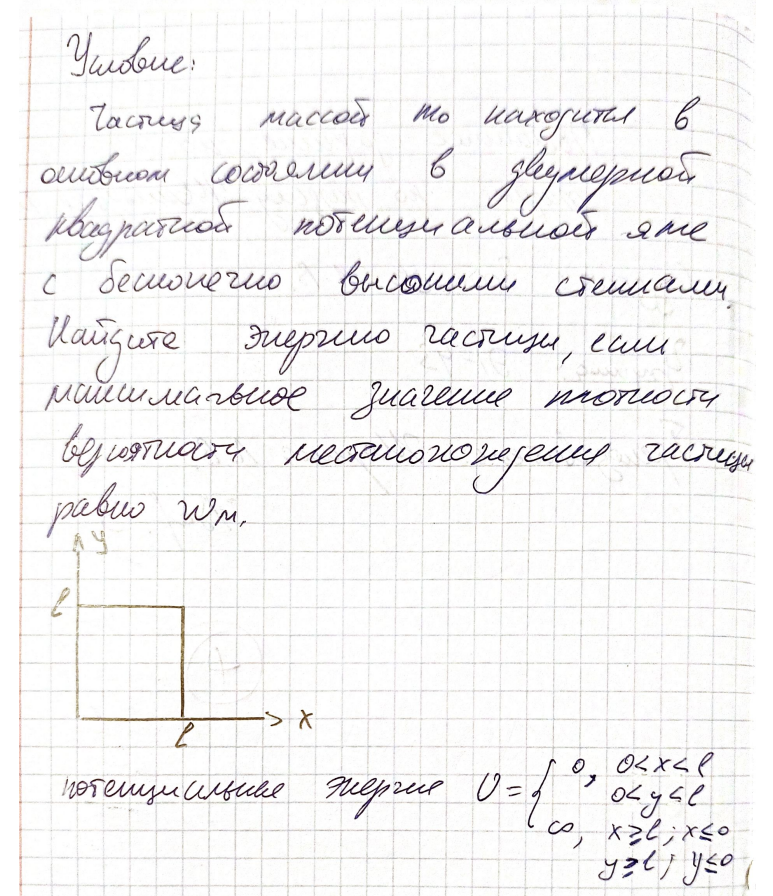 Условие:
Частица массой m₀ находится в
основном состоянии в двумерной
квадратной потенциальной яме
с бесконечно высокими стенками.
Найдите энергию частицы, если
максимальное значение плотности
вероятности местанохождения частицы
равно wм.
y
l
x
l
потенциальная энергия U = { 0, 0<x<l
0<y<l
∞, x≥l; x≤0
y≥l; y≤0